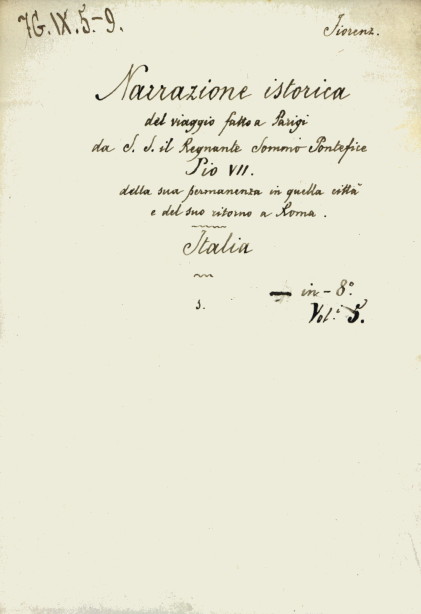 7G.IX.5-9.
Fiorenz.
Narrazione istorica
del viaggio fatto a Parigi
da S. S. il Regnante Sommo Pontefice
Pio VII.
della sua permanenza in quella città
e del suo ritorno a Roma.
Italia
s.
— in-8°.
Vol.i 5.